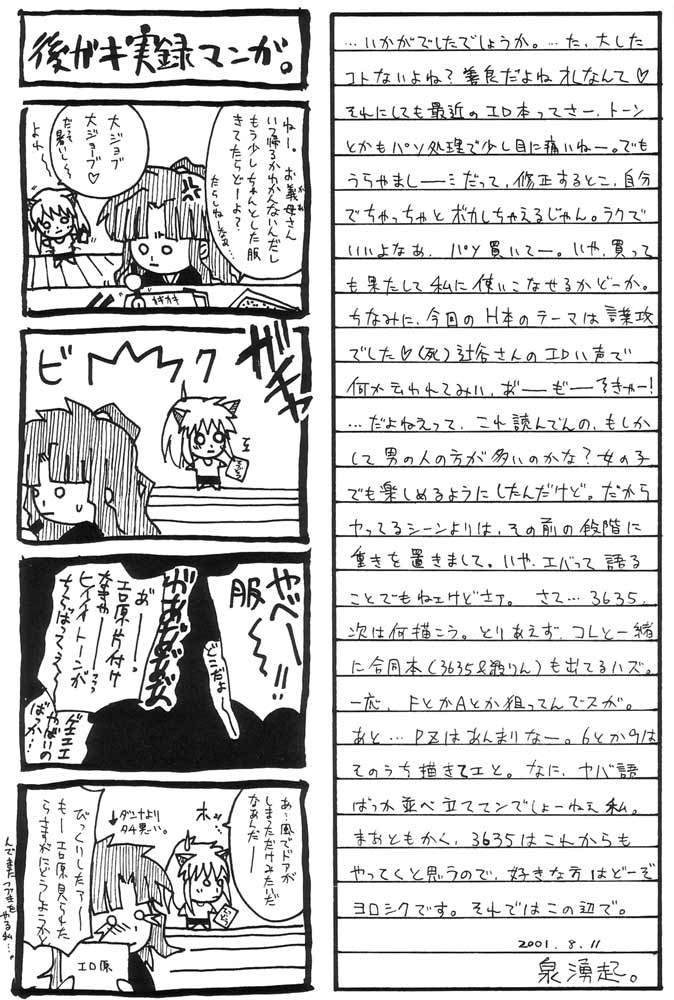 後ガキ実録マンガ。
ねー。お義母さん
いつ帰るかわかんないんだし
もう少しちゃんとした服
きてたらどーよ?
だらしねえなあ…
大ジョブ
大ジョーブ♡
だって
暑いしぃ
よゆ〜
ガチャ
ビクク
やべーー!!
服
どこだよ
がああああ
あ゛ーーっ
エロ原片付け
なきゃーー
ヒイイイトーンが
ちらばってるぅ〜
ゲェエエ
やばいの
ばっか…
あ…風でドアが
しまっただけみたいだ
なあんだー
ホッ…
↓ダンナより
タチ悪ーい。
びっくりしたアー
もーエロ原見られた
らさすがにどうしようかと
エロ原
んでまた
やる私…。
…いかがでしたでしょうか。…た、大した
コトないよね?善良だよねオレなんて♡
それにしても最近のエロ本ってさー、トーン
とかもパソ処理で少し目に痛いねー。でも
うらやましーーミだって、修正するとこ、自分
でちゃっちゃとボカしちゃえるじゃん。ラクで
いいよなあ、パソ買いてー。いや、買って
も果たして私に使いこなせるかどーか。
ちなみに、今回のH本のテーマは言葉攻
でした♡(死)辻谷さんのエロい声で
何か云われてみい、おーーもーーろきゃー!
…だよねえって、これ読んでんの、もしか
して男の人の方が多いのかな?女の子
でも楽しめるようにしたんだけど。だから
ヤってるシーンよりは、その前の段階に
重きを置きまして。いや、エバって語る
ことでもねェけどさァ。さて…3635、
次は何描こう。とりあえず、コレと一緒
に合同本(3635&殺りん)も出てるハズ。
一応、FとかAとか狙ってんでスが。
あと…PZはあんまりなー。6とか9は
そのうち描きてエと。なに、ヤバ語
ばっか並べ立ててンでしょーねぇ私。
まあともかく、3635はこれからも
やってくと思うので、好きな方はどーぞ
ヨロシクです。それではこの辺で。
2001.8.11
泉湧起。